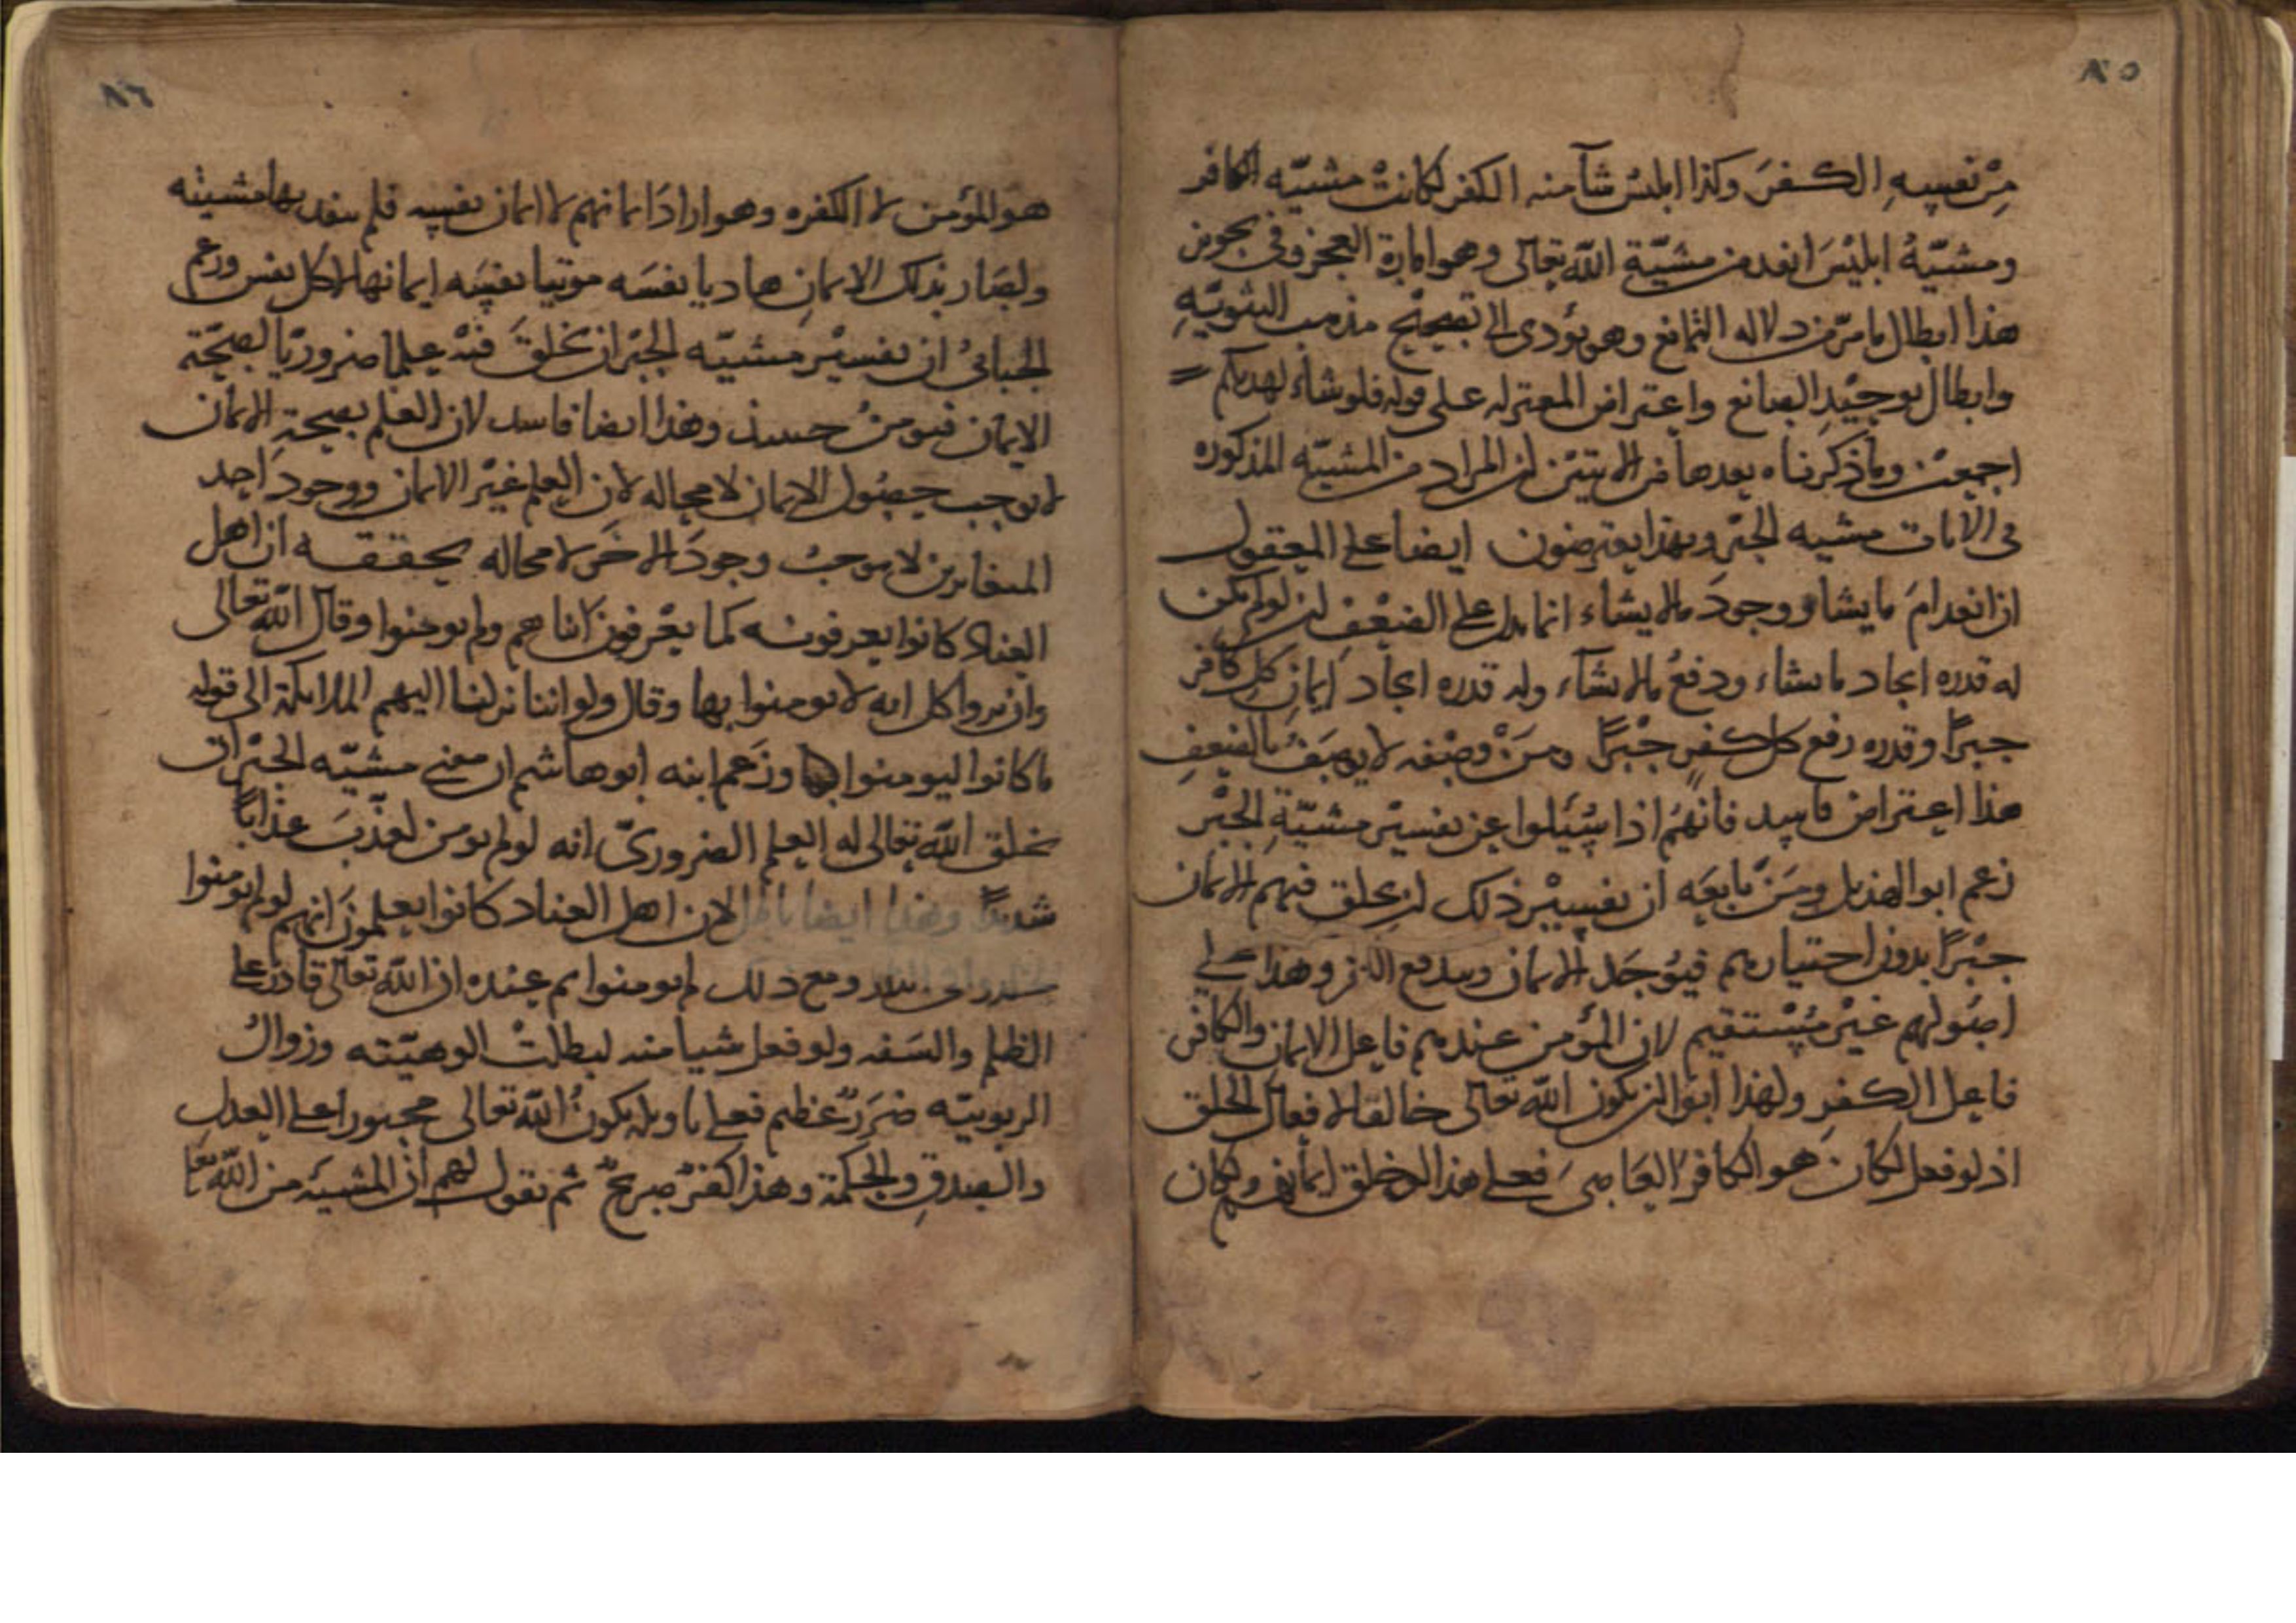 ٨٥
من نفسه الكفر وكذا ابليس شآ منه الكفر لكانت مشيّه الكافر
ومشيّة ابليس انفد من مشيّة اللّه تعالى وهو امارة العجز وفى تجويز
هذا ابطال ما مرّ من دلاله التمانع وهو يؤدى الا تصحيح مذهب الثنويّة
وابطال توحيد الصانع واعتراض المعتزله على قوله فلو شاء لهديكم =
اجمعين وما ذكرناه بعدها من الايتين ان المراد من المشيّه المذكوره
فى الايات مشيه الجبر وبهذا يعترضون ايضا على المعقول
ان انعدام ما يشا ووجود ما لا يشاء انما يدل على الضعف ان لو لم يكن
له قدره ايجاد ما يشاء ودفع ما لا يشاء وله قدره ايجاد ايمان كل كافر
جبرًا وقدره رفع كل كفر جبرًا ومن وصفه لا يوصف بالضعف
هذا اعتراض فاسد فانهم اذا سئلوا عن تفسير مشيّة الجبر
زعم ابو الهذيل ومن تابعه ان تفسير ذلك ان يخلق فيهم الايمان
جبرًا بدون اختيارهم فيوجد الايمان ويندفع وهذا على
اصولهم غير مستقيم لان المؤمن عندهم فاعل الايمان والكافر
فاعل الكفر ولهذا ابوا ان يكون اللّه تعالى خالقا لافعال الخلق
اذ لو فعل لكان هو الكافر العاصى فعلى هذا لو خلق ايمانهم ولكان
٨٦
هو المؤمن لا الكفره وهو اراد ايمانهم لا ايمان نفسه فلم ينفد بها مشيته
ولصار بذلك الايمان هاديا نفسه موتيا نفسه ايمانها لا كل نفس وزعم
الجبائى ان تفسير مشيّه الجبر ان يخلق فيه علما ضروريّا لصحّة
الايمان فيومن حينئذ وهذا ايضا فاسد لان العلم بصحة الايمان
لا يوجب حصول الايمان لا محاله لان العلم غير الايمان ووجود احد
المتغايرين لا يوجب وجود الاخر لا محاله يحققه ان اهل
العناد كانوا يعرفونه كما يعرفون ابناهم ولم يومنوا وقال اللّه تعالى
وان يروا كل ايه لا يومنوا بها وقال ولو اننا نزلنا اليهم الملايكة الى قوله
ما كانوا ليومنوا وزعم ابنه ابو هاشم ان معنى مشيّه الجبر ان
يخلق اللّه تعالى له العلم الضرورىّ انه لو لم يومن لعذّب عذابًا
شديدًا وهذا ايضا باطل لان اهل العناد كانوا يعلمون انهم لو لم يومنوا
ومع ذلك لم يومنوا ثم عنده ان اللّه تعالى قادر على
الظلم والسفه ولو فعل شيا منه لبطلت الوهيّته وزوال
الربوبيّه ضرر عظيم فعلى تاويله يكون اللّه تعالى مجبورا على العدل
والصدق والحكمة وهذا كفر صريح ثم نقول لهم ان المشيه من اللّه تعا